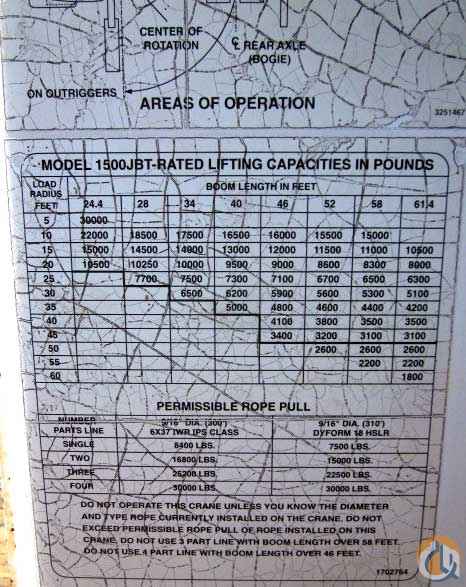 CENTER OF
ROTATION
℄ REAR AXLE
(BOGIE)
ON OUTRIGGERS
AREAS OF OPERATION
3251467
MODEL 1500JBT-RATED LIFTING CAPACITIES IN POUNDS
LOAD
RADIUS
FEET
BOOM LENGTH IN FEET
24.4 28 34 40 46 52 58 61.4
5 30000
10 22000 18500 17500 16500 16000 15500 15000
15 15000 14500 14000 13000 12000 11500 11000 10500
20 10500 10250 10000 9500 9000 8600 8300 8000
25 7700 7500 7300 7100 6700 6500 6300
30 6500 6200 5900 5600 5300 5100
35 5000 4800 4600 4400 4200
40 4100 3800 3500 3500
45 3400 3200 3100 3100
50 2600 2600 2600
55 2200 2200
60 1800
PERMISSIBLE ROPE PULL
NUMBER
PARTS LINE
9/16" DIA. (300')
6X37 IWR IPS CLASS
9/16" DIA. (310')
DYFORM 18 HSLR
SINGLE 8400 LBS. 7500 LBS.
TWO 16800 LBS. 15000 LBS.
THREE 25200 LBS. 22500 LBS.
FOUR 30000 LBS. 30000 LBS.
DO NOT OPERATE THIS CRANE UNLESS YOU KNOW THE DIAMETER
AND TYPE ROPE CURRENTLY INSTALLED ON THE CRANE. DO NOT
EXCEED PERMISSIBLE ROPE PULL OF ROPE INSTALLED ON THIS
CRANE. DO NOT USE 3 PART LINE WITH BOOM LENGTH OVER 58 FEET.
DO NOT USE 4 PART LINE WITH BOOM LENGTH OVER 46 FEET.
1702764